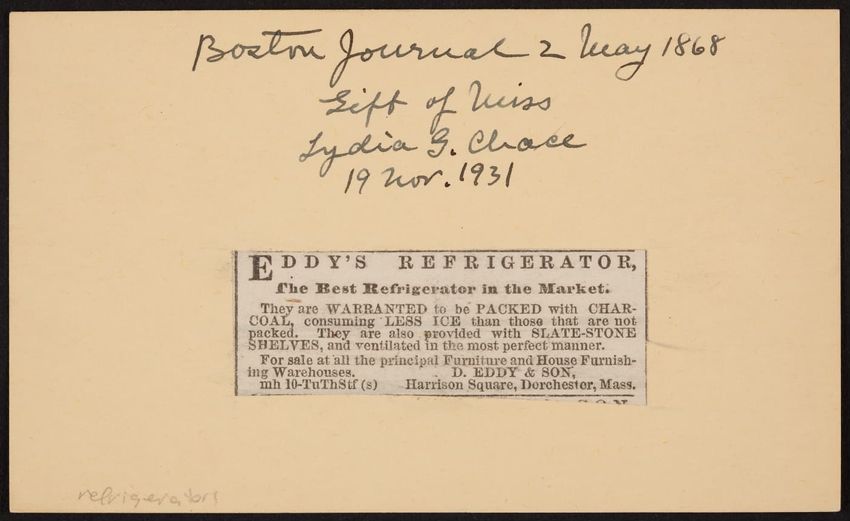 Boston Journal 2 May 1868
Gift of Miss
Lydia G. Chace
19 Nov. 1931
EDDY'S REFRIGERATOR,
The Best Refrigerator in the Market.
They are WARRANTED to be PACKED with CHAR-
COAL, consuming LESS ICE than those that are not
packed. They are also provided with SLATE-STONE
SHELVES, and ventilated in the most perfect manner.
For sale at all the principal Furniture and House Furnish-
ing Warehouses. D. EDDY & SON,
mh 10-TuThStf (s) Harrison Square, Dorchester, Mass.
refrigerators